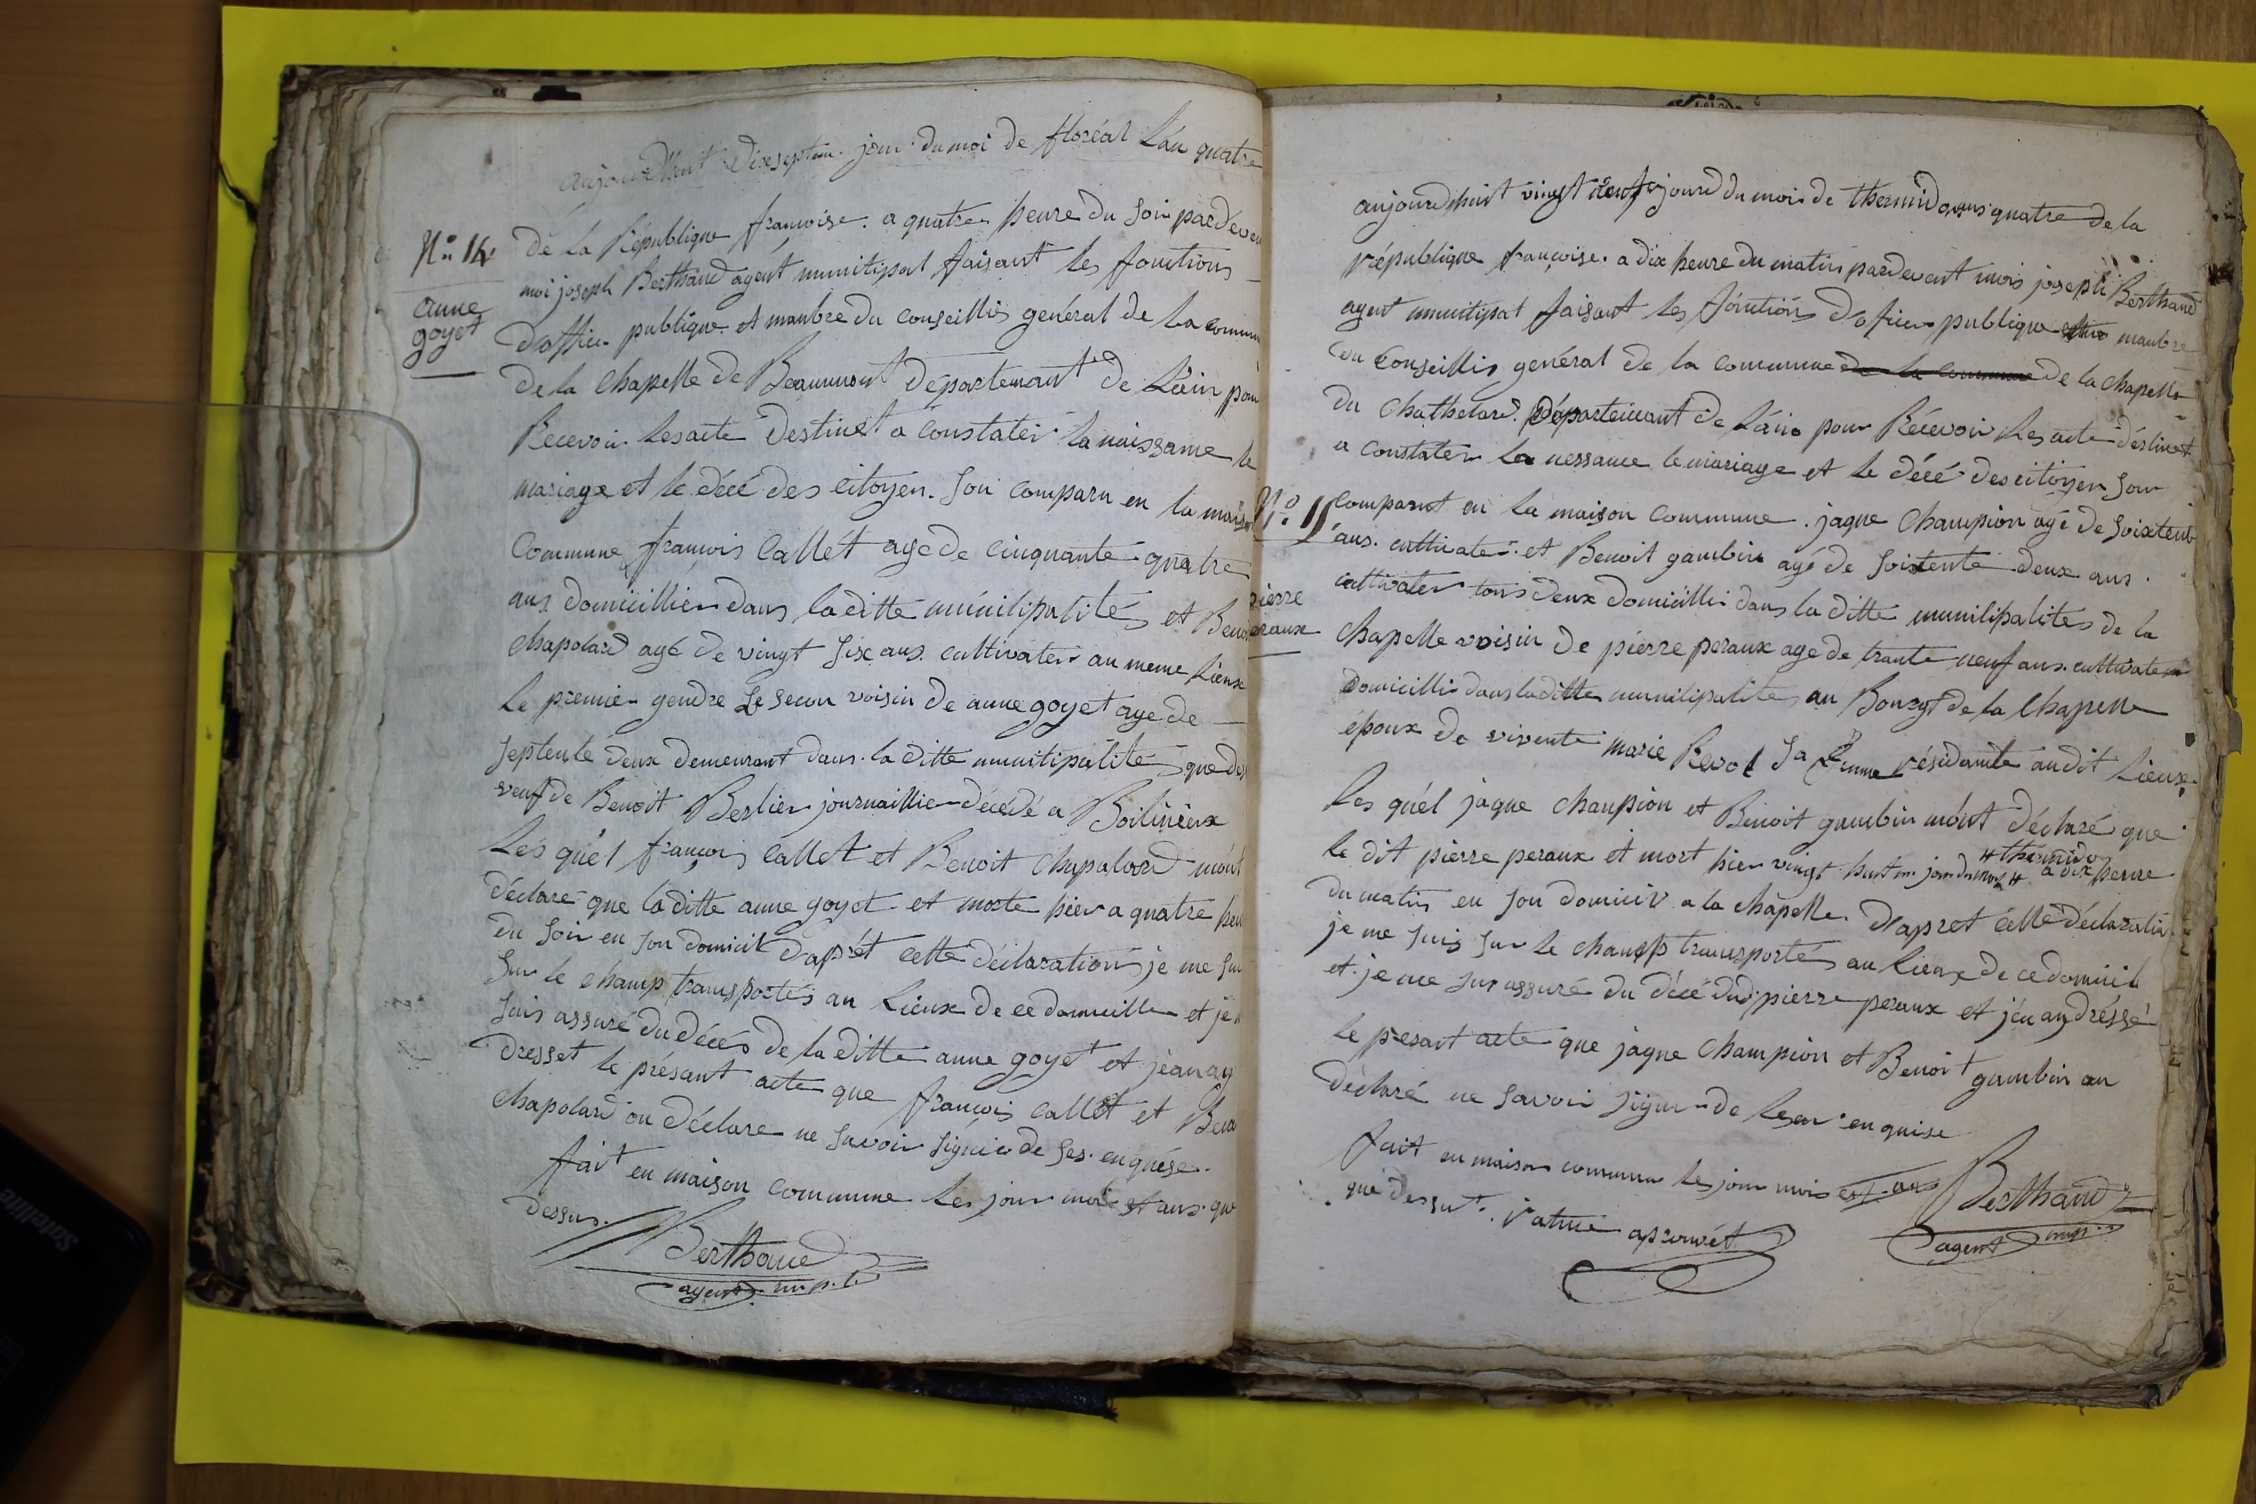 aujourd'huit dixseptem. jour du moi de floréal l'an quatre
de la République françoise. a quatre heure du soir pardeven
N.° 14
moi joseph Berthaud agent munitipal faisant les fontions
anne
goyet
d'officier publique et manbre du conseillis genéral de la commun
de la chapelle de Beaumont département de l'ain pour
Recevoir les acte destinet a constater la naissance le
mariage et le décé des citoyen. son comparu en la maison
commune françois Callet agé de cinquante quatre
ans domicillier dans la ditte munitipalités et Benoi
chapolard agé de vingt six ans cultivater au meme lieux
le premier gendre le secon voisin de anne goyet age de
septente deux demeurant dans la ditte munitipalité
veuf de Benoit Berlier journaillier décédé a
Les quel françois Callet et Benoit chapolard m'ont
déclaré que la ditte anne goyet et morte hier a quatre heu
du soir en son domicil d'aprét cette déclaration je me sui
sur le champ transportés au lieux de ce domicille et je m
suis assuré du décés de la ditte anne goyet et j'en ay
dresset le présant acte que françois Callet et Beno
chapolard on déclare ne savoir signier de ses enquise.
fait en maison commune les jour moi et ans que
dessus.
Berthaud
agent mp.l
aujourdhuit vingt neuf jourd du mois de thermidor ans quatre de la
république françoise. a dix heure du matin pardevant mois joseph Berthaud
agent munitipal faisant les fontions d'oficier publique manbre
du Conseillis genéral de la commune de la commune de la chapelle
du Chathelard. Département de l'ain pour Récevoir les acte déstinet
a constater la nessance le mariage et le décé des citoyen son
N.° 15
comparut en la maison commune. jaque Champion agé de soixtente
ans. cultivater. et Benoit gambin agé de soixtente deux ans.
pierre
peraux
cultivater tous deux domicillie dans la ditte munitipalités de la
chapelle voisin de pierre peraux age de trante neuf ans cultivater
domicillie dans la ditte munitipalités au Bourgt de la Chapelle
époux de vivente marie Revol sa femme résidante audit lieux.
les quél jaque champion et Benoit gambin m'ont déclaré que
le dit pierre peraux et mort hier vingt huit m. jour du mois # a dix heure
# thermido
du matin en son domiciv a la chapelle. d'apret cette déclaration
je me suis sur le champ transportés au lieux de ce domicil
et je me suis assuré du décé dud. pierre peraux et j'en ay dréssé
le présant acte que jaque Champion et Benoit gambin on
déclaré ne savoir signer de leser enquise
fait en maison commune les jour mois et. ans
que dessut.
rature aprouvét
Berthaud
agent mp.l